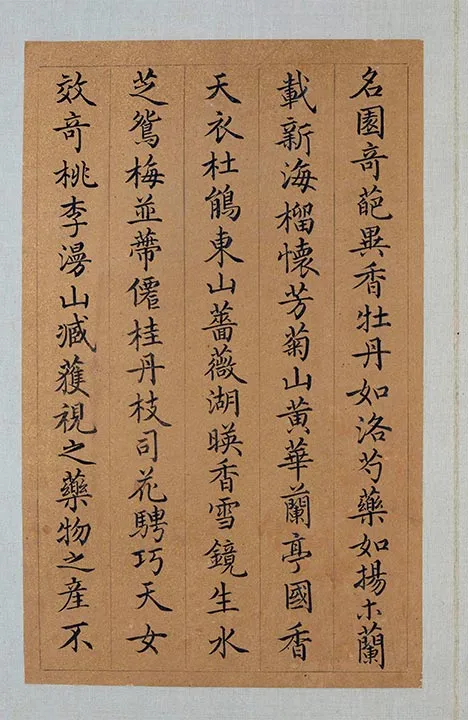 名園奇葩異香牡丹如洛芍藥如揚木蘭
載新海榴懷芳菊山黃華蘭亭國香
天衣杜鵑東山薔薇湖暎香雪鏡生水
芝鴛梅並蔕僊桂丹枝司花騁巧天女
效奇桃李漫山臧獲視之藥物之產不